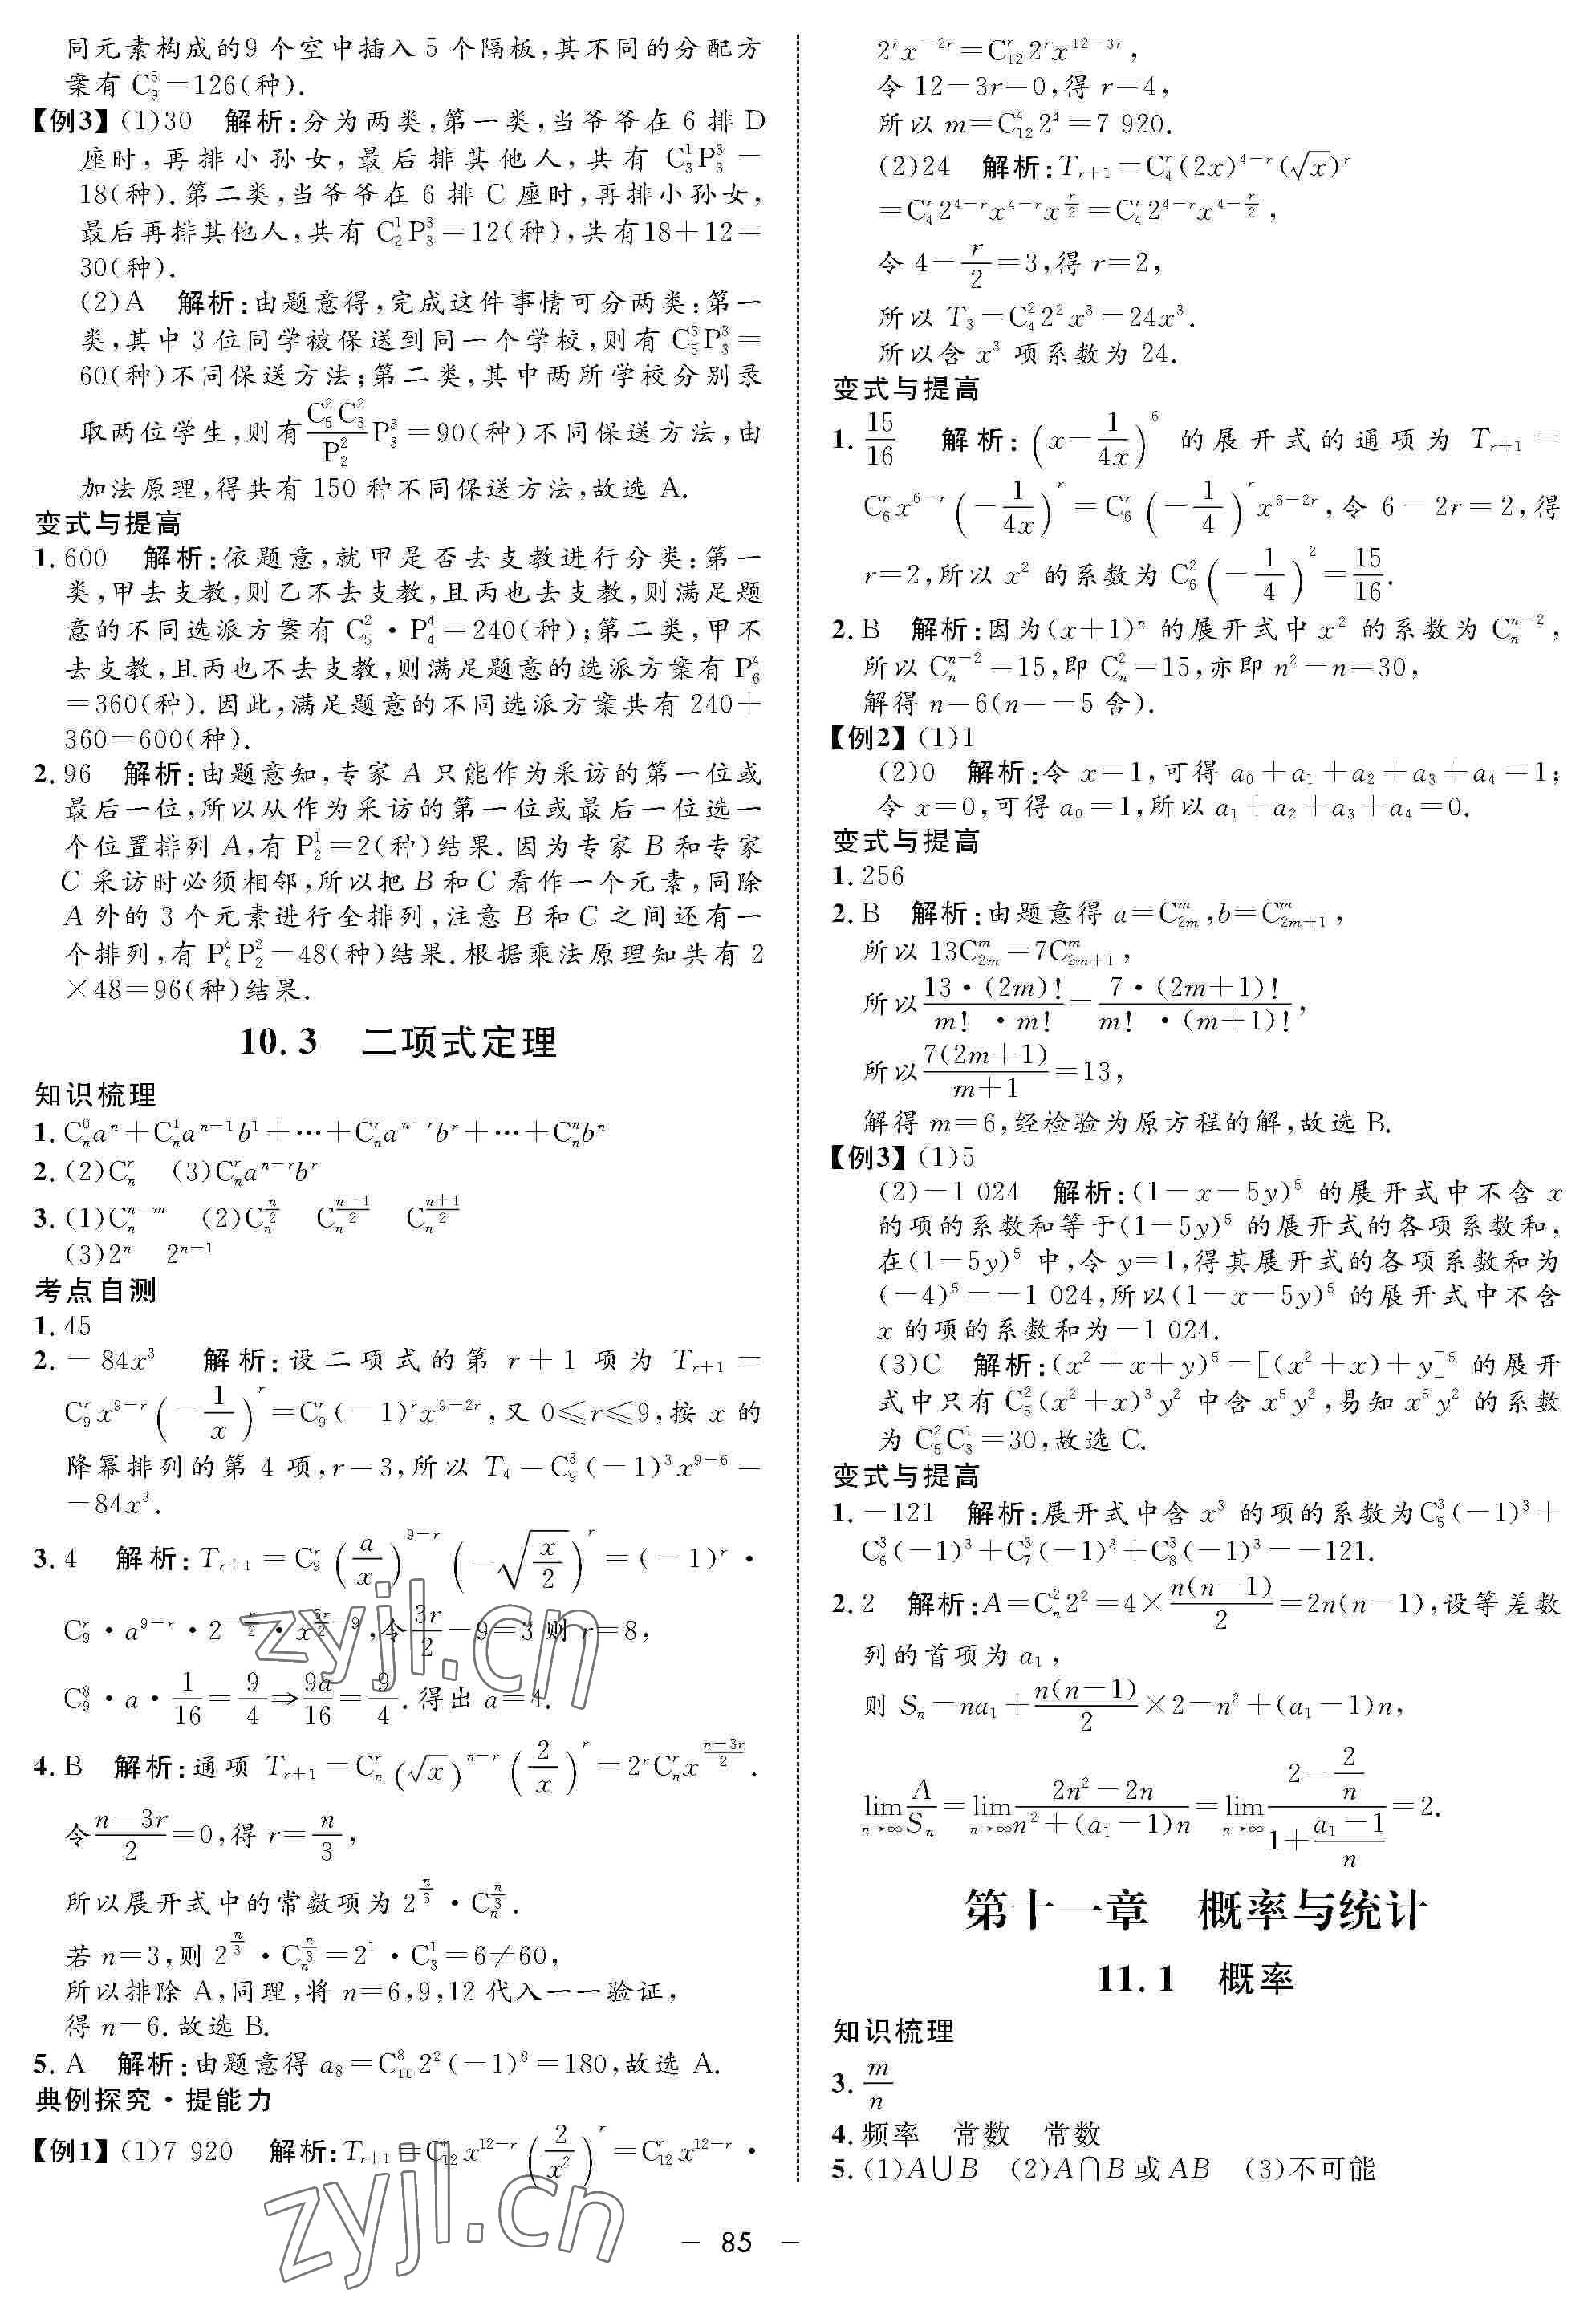 同元素构成的9个空中插入5个隔板,其不同的分配方
案有 C₉⁵=126(种).
【例3】(1)30 解析:分为两类,第一类,当爷爷在6排D
座时,再排小孙女,最后排其他人,共有 C₃¹P₃³=
18(种).第二类,当爷爷在6排C座时,再排小孙女,
最后再排其他人,共有 C₂¹P₃³=12(种),共有18+12=
30(种).
(2)A 解析:由题意得,完成这件事情可分两类:第一
类,其中3位同学被保送到同一个学校,则有 C₅³P₃³=
60(种)不同保送方法;第二类,其中两所学校分别录
取两位学生,则有 \frac{C₅²C₃²}{P₂²}P₃³=90(种)不同保送方法,由
加法原理,得共有150种不同保送方法,故选A.
变式与提高
1.600 解析:依题意,就甲是否去支教进行分类:第一
类,甲去支教,则乙不去支教,且丙也去支教,则满足题
意的不同选派方案有 C₅²·P₄⁴=240(种);第二类,甲不
去支教,且丙也不去支教,则满足题意的选派方案有 P₆⁴
=360(种).因此,满足题意的不同选派方案共有240+
360=600(种).
2.96 解析:由题意知,专家A只能作为采访的第一位或
最后一位,所以从作为采访的第一位或最后一位选一
个位置排列A,有 P₂¹=2(种)结果.因为专家B和专家
C采访时必须相邻,所以把B和C看作一个元素,同除
A外的3个元素进行全排列,注意B和C之间还有一
个排列,有 P₄⁴P₂²=48(种)结果.根据乘法原理知共有2
×48=96(种)结果.
10.3 二项式定理
知识梳理
1.C_n^0a^n+C_n^1a^{n-1}b^1+…+C_n^ra^{n-r}b^r+…+C_n^nb^n
2.(2)C_n^r (3)C_n^ra^{n-r}b^r
3.(1)C_n^{n-m} (2)C_n^{\frac{n}{2}} C_n^{\frac{n-1}{2}} C_n^{\frac{n+1}{2}}
(3)2^n 2^{n-1}
考点自测
1.45
2.-84x³ 解析:设二项式的第r+1项为 T_{r+1}=
C_9^rx^{9-r}(-\frac{1}{x})^r=C_9^r(-1)^rx^{9-2r},又0≤r≤9,按x的
降幂排列的第4项,r=3,所以 T₄=C_9^3(-1)³x^{9-6}=
-84x³.
3.4 解析:T_{r+1}=C_9^r(\frac{a}{x})^{9-r}(-\sqrt{\frac{x}{2}})^r=(-1)^r·
C_9^r·a^{9-r}·2^{-\frac{r}{2}}·x^{\frac{3r}{2}-9},令\frac{3r}{2}-9=3则r=8,
C_9^8·a·\frac{1}{16}=\frac{9}{4}⇒\frac{9a}{16}=\frac{9}{4}.得出a=4.
4.B 解析:通项 T_{r+1}=C_n^r(\sqrt{x})^{n-r}(\frac{2}{x})^r=2^rC_n^rx^{\frac{n-3r}{2}}.
令\frac{n-3r}{2}=0,得r=\frac{n}{3},
所以展开式中的常数项为 2^{\frac{n}{3}}·C_n^{\frac{n}{3}}.
若n=3,则 2^{\frac{n}{3}}·C_n^{\frac{n}{3}}=2¹·C_3^1=6≠60,
所以排除A,同理,将n=6,9,12代入一一验证,
得n=6.故选B.
5.A 解析:由题意得 a₈=C_{10}^8 2²(-1)⁸=180,故选A.
典例探究·提能力
【例1】(1)7 920 解析:T_{r+1}=C_{12}^rx^{12-r}(\frac{2}{x²})^r=C_{12}^rx^{12-r}·
2^rx^{-2r}=C_{12}^r2^rx^{12-3r},
令12-3r=0,得r=4,
所以m=C_{12}^4 2⁴=7 920.
(2)24 解析:T_{r+1}=C_4^r(2x)^{4-r}(\sqrt{x})^r
=C_4^r2^{4-r}x^{4-r}x^{\frac{r}{2}}=C_4^r2^{4-r}x^{4-\frac{r}{2}},
令4-\frac{r}{2}=3,得r=2,
所以 T₃=C_4^2 2²x³=24x³.
所以含x³项系数为24.
变式与提高
1.\frac{15}{16} 解析:(x-\frac{1}{4x})^6的展开式的通项为 T_{r+1}=
C_6^rx^{6-r}(-\frac{1}{4x})^r=C_6^r(-\frac{1}{4})^rx^{6-2r},令6-2r=2,得
r=2,所以x²的系数为 C_6^2(-\frac{1}{4})^2=\frac{15}{16}.
2.B 解析:因为(x+1)^n的展开式中x²的系数为 C_n^{n-2},
所以 C_n^{n-2}=15,即 C_n^2=15,亦即n²-n=30,
解得n=6(n=-5舍).
【例2】(1)1
(2)0 解析:令x=1,可得 a₀+a₁+a₂+a₃+a₄=1;
令x=0,可得 a₀=1,所以 a₁+a₂+a₃+a₄=0.
变式与提高
1.256
2.B 解析:由题意得 a=C_{2m}^m,b=C_{2m+1}^m,
所以 13C_{2m}^m=7C_{2m+1}^m,
所以\frac{13·(2m)!}{m!·m!}=\frac{7·(2m+1)!}{m!·(m+1)!},
所以\frac{7(2m+1)}{m+1}=13,
解得m=6,经检验为原方程的解,故选B.
【例3】(1)5
(2)-1 024 解析:(1-x-5y)⁵的展开式中不含x
的项的系数和等于(1-5y)⁵的展开式的各项系数和,
在(1-5y)⁵中,令y=1,得其展开式的各项系数和为
(-4)⁵=-1 024,所以(1-x-5y)⁵的展开式中不含
x的项的系数和为-1 024.
(3)C 解析:(x²+x+y)⁵=[(x²+x)+y]⁵的展开
式中只有 C_5^2(x²+x)³y²中含x⁵y²,易知x⁵y²的系数
为 C_5^2C_3^1=30,故选C.
变式与提高
1.-121 解析:展开式中含x³的项的系数为C_5^3(-1)³+
C_6^3(-1)³+C_7^3(-1)³+C_8^3(-1)³=-121.
2.2 解析:A=C_n^2 2²=4×\frac{n(n-1)}{2}=2n(n-1),设等差数
列的首项为a₁,
则 S_n=na₁+\frac{n(n-1)}{2}×2=n²+(a₁-1)n,
\lim_{n→∞}\frac{A}{S_n}=\lim_{n→∞}\frac{2n²-2n}{n²+(a₁-1)n}=\lim_{n→∞}\frac{2-\frac{2}{n}}{1+\frac{a₁-1}{n}}=2.
第十一章 概率与统计
11.1 概率
知识梳理
3.\frac{m}{n}
4.频率 常数 常数
5.(1)A∪B (2)A∩B或AB (3)不可能
zyjl.cn
zyjl.cn
— 85 —